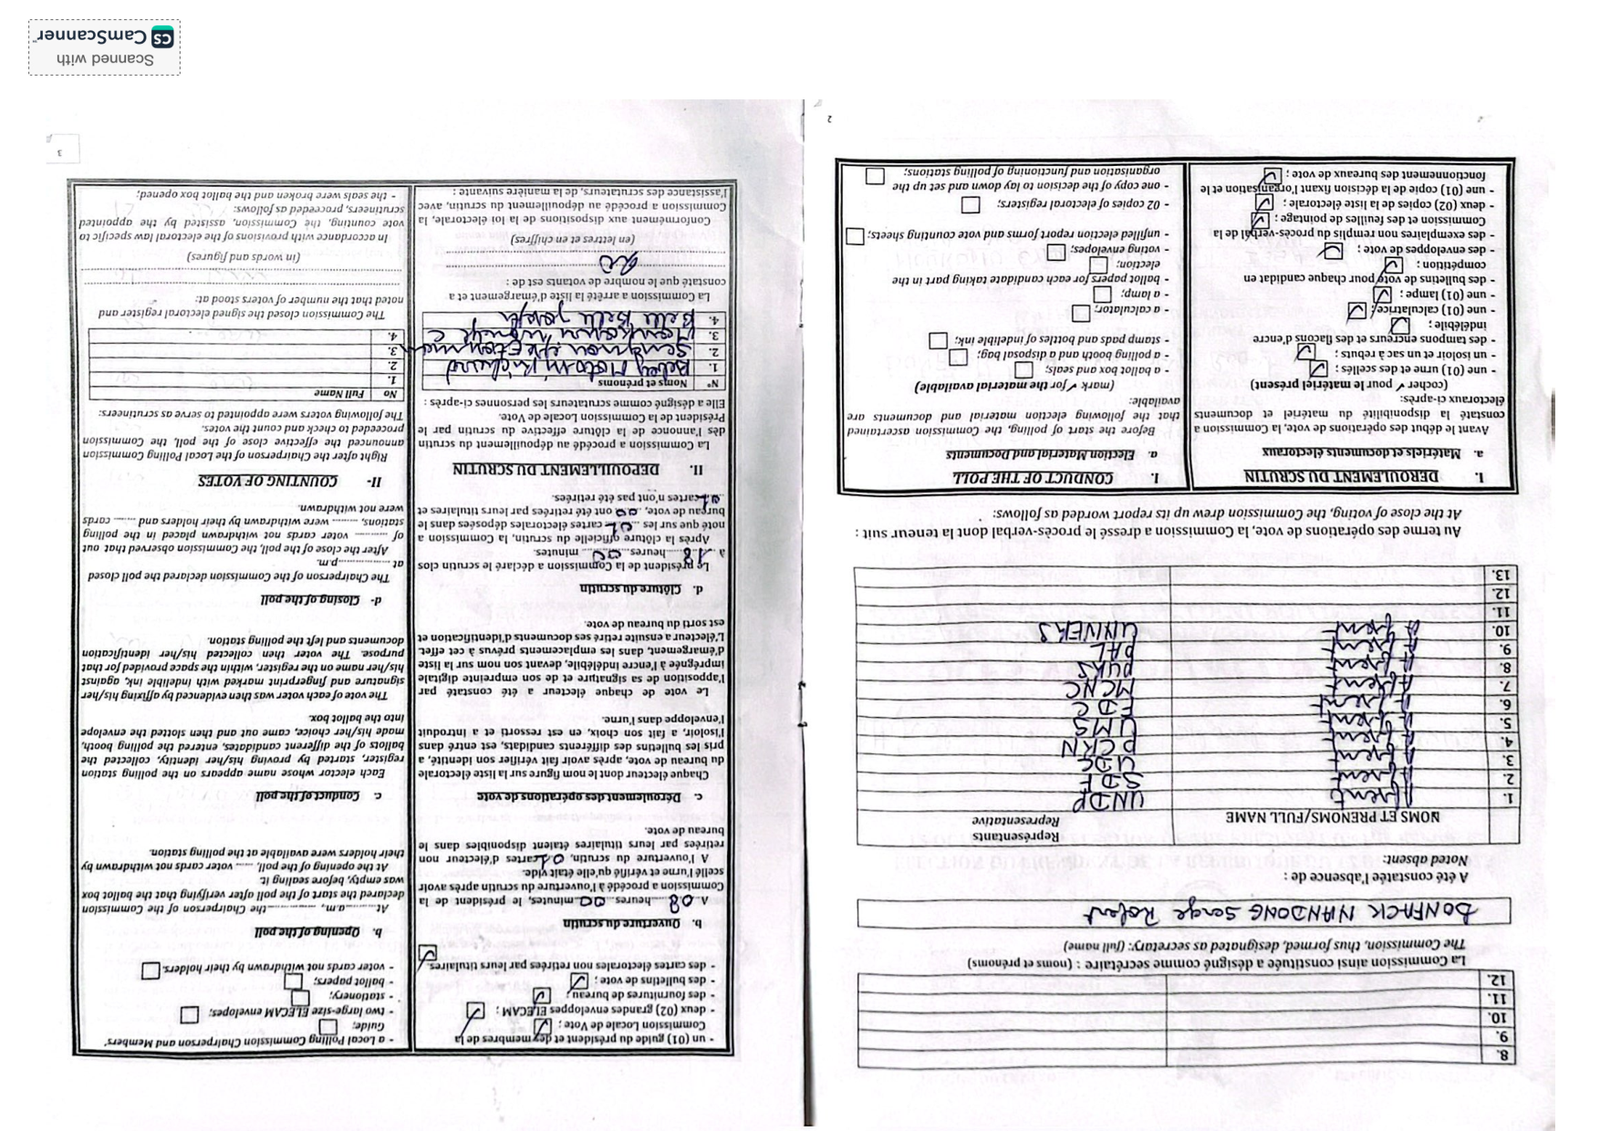 8.
9.
10.
11.
12.
La Commission ainsi constituée a désigné comme secrétaire : (noms et prénoms)
The Commission, thus formed, designated as secretary: (full name)
DONFACK NANDONG Serge Robert
A été constatée l'absence de :
Noted absent:
NOMS ET PRENOMS/FULL NAME
Représentants
Representative
1. Absent UNDP
2. Absent SDF
3. Absent UDC
4. Absent PCRN
5. Absent UMS
6. Absent FDC
7. Absent MCNC
8. Absent PURS
9. Absent PAL
10. Absent UNIVERS
11.
12.
13.
Au terme des opérations de vote, la Commission a dressé le procès-verbal dont la teneur suit :
At the close of voting, the Commission drew up its report worded as follows:
I. DEROULEMENT DU SCRUTIN
a. Matériels et documents électoraux
Avant le début des opérations de vote, la Commission a
constaté la disponibilité du matériel et documents
électoraux ci-après:
(cocher ✓ pour le matériel présent)
- une (01) urne et des scellés ; ✓
- un isoloir et un sac à rebuts ; ✓
- des tampons encreurs et des flacons d'encre
indélébile ; ✓
- une (01) calculatrice ; ✓
- une (01) lampe ; ✓
- des bulletins de vote pour chaque candidat en
compétition ; ✓
- des enveloppes de vote ; ✓
- des exemplaires non remplis du procès-verbal de la
Commission et des feuilles de pointage ; ✓
- deux (02) copies de la liste électorale ; ✓
- une (01) copie de la décision fixant l'organisation et le
fonctionnement des bureaux de vote ; ✓
I. CONDUCT OF THE POLL
a. Election Material and Documents
Before the start of polling, the Commission ascertained
that the following election material and documents are
available:
(mark ✓ for the material available)
- a ballot box and seals;
- a polling booth and a disposal bag;
- stamp pads and bottles of indelible ink;
- a calculator;
- a lamp;
- ballot papers for each candidate taking part in the
election;
- voting envelopes;
- unfilled election report forms and vote counting sheets;
- 02 copies of electoral registers;
- one copy of the decision to lay down and set up the
organisation and functioning of polling stations;
2
- un (01) guide du président et des membres de la
Commission Locale de Vote ; ✓
- deux (02) grandes enveloppes ELECAM ; ✓
- des fournitures de bureau ; ✓
- des bulletins de vote ; ✓
- des cartes électorales non retirées par leurs titulaires. ✓
b. Ouverture du scrutin
A 08 heures 00 minutes, le président de la
Commission a procédé à l'ouverture du scrutin après avoir
scellé l'urne et vérifié qu'elle était vide.
A l'ouverture du scrutin, 02 cartes d'électeur non
retirées par leurs titulaires étaient disponibles dans le
bureau de vote.
c. Déroulement des opérations de vote
Chaque électeur dont le nom figure sur la liste électorale
du bureau de vote, après avoir fait vérifier son identité, a
pris les bulletins des différents candidats, est entré dans
l'isoloir, a fait son choix, en est ressorti et a introduit
l'enveloppe dans l'urne.
Le vote de chaque électeur a été constaté par
l'apposition de sa signature et de son empreinte digitale
imprégnée à l'encre indélébile, devant son nom sur la liste
d'émargement, dans les emplacements prévus à cet effet.
L'électeur a ensuite retiré ses documents d'identification et
est sorti du bureau de vote.
d. Clôture du scrutin
Le président de la Commission a déclaré le scrutin clos
à 18 heures 00 minutes.
Après la clôture officielle du scrutin, la Commission a
noté que sur les 02 cartes électorales déposées dans le
bureau de vote, 00 ont été retirées par leurs titulaires et
02 cartes n'ont pas été retirées.
II. DEPOUILLEMENT DU SCRUTIN
La Commission a procédé au dépouillement du scrutin
dès l'annonce de la clôture effective du scrutin par le
Président de la Commission Locale de Vote.
Elle a désigné comme scrutateurs les personnes ci-après :
N° Noms et prénoms
1.
2.
3.
4. Bell Bell Joseph
La Commission a arrêté la liste d'émargement et a
constaté que le nombre de votants est de :
(en lettres et en chiffres)
Conformément aux dispositions de la loi électorale, la
Commission a procédé au dépouillement du scrutin, avec
l'assistance des scrutateurs, de la manière suivante :
- a Local Polling Commission Chairperson and Members'
Guide;
- two large-size ELECAM envelopes;
- stationery;
- ballot papers;
- voter cards not withdrawn by their holders.
b. Opening of the poll
At..........a.m, ..........the Chairperson of the Commission
declared the start of the poll after verifying that the ballot box
was empty, before sealing it.
At the opening of the poll, ...... voter cards not withdrawn by
their holders were available at the polling station.
c. Conduct of the poll
Each elector whose name appears on the polling station
register, started by proving his/her identity, collected the
ballots of the different candidates, entered the polling booth,
made his/her choice, came out and then slotted the envelope
into the ballot box.
The vote of each voter was then evidenced by affixing his/her
signature and fingerprint marked with indelible ink, against
his/her name on the register, within the space provided for that
purpose. The voter then collected his/her identification
documents and left the polling station.
d- Closing of the poll
The Chairperson of the Commission declared the poll closed
at ................p.m.
After the close of the poll, the Commission observed that out
of .......... voter cards not withdrawn placed in the polling
stations, ........ were withdrawn by their holders and ....... cards
were not withdrawn.
II- COUNTING OF VOTES
Right after the Chairperson of the Local Polling Commission
announced the effective close of the poll, the Commission
proceeded to check and count the votes.
The following voters were appointed to serve as scrutineers:
No Full Name
1.
2.
3.
4.
The Commission closed the signed electoral register and
noted that the number of voters stood at:
(in words and figures)
In accordance with provisions of the electoral law specific to
vote counting, the Commission, assisted by the appointed
scrutineers, proceeded as follows:
- the seals were broken and the ballot box opened;
3
Scanned with
CS CamScanner